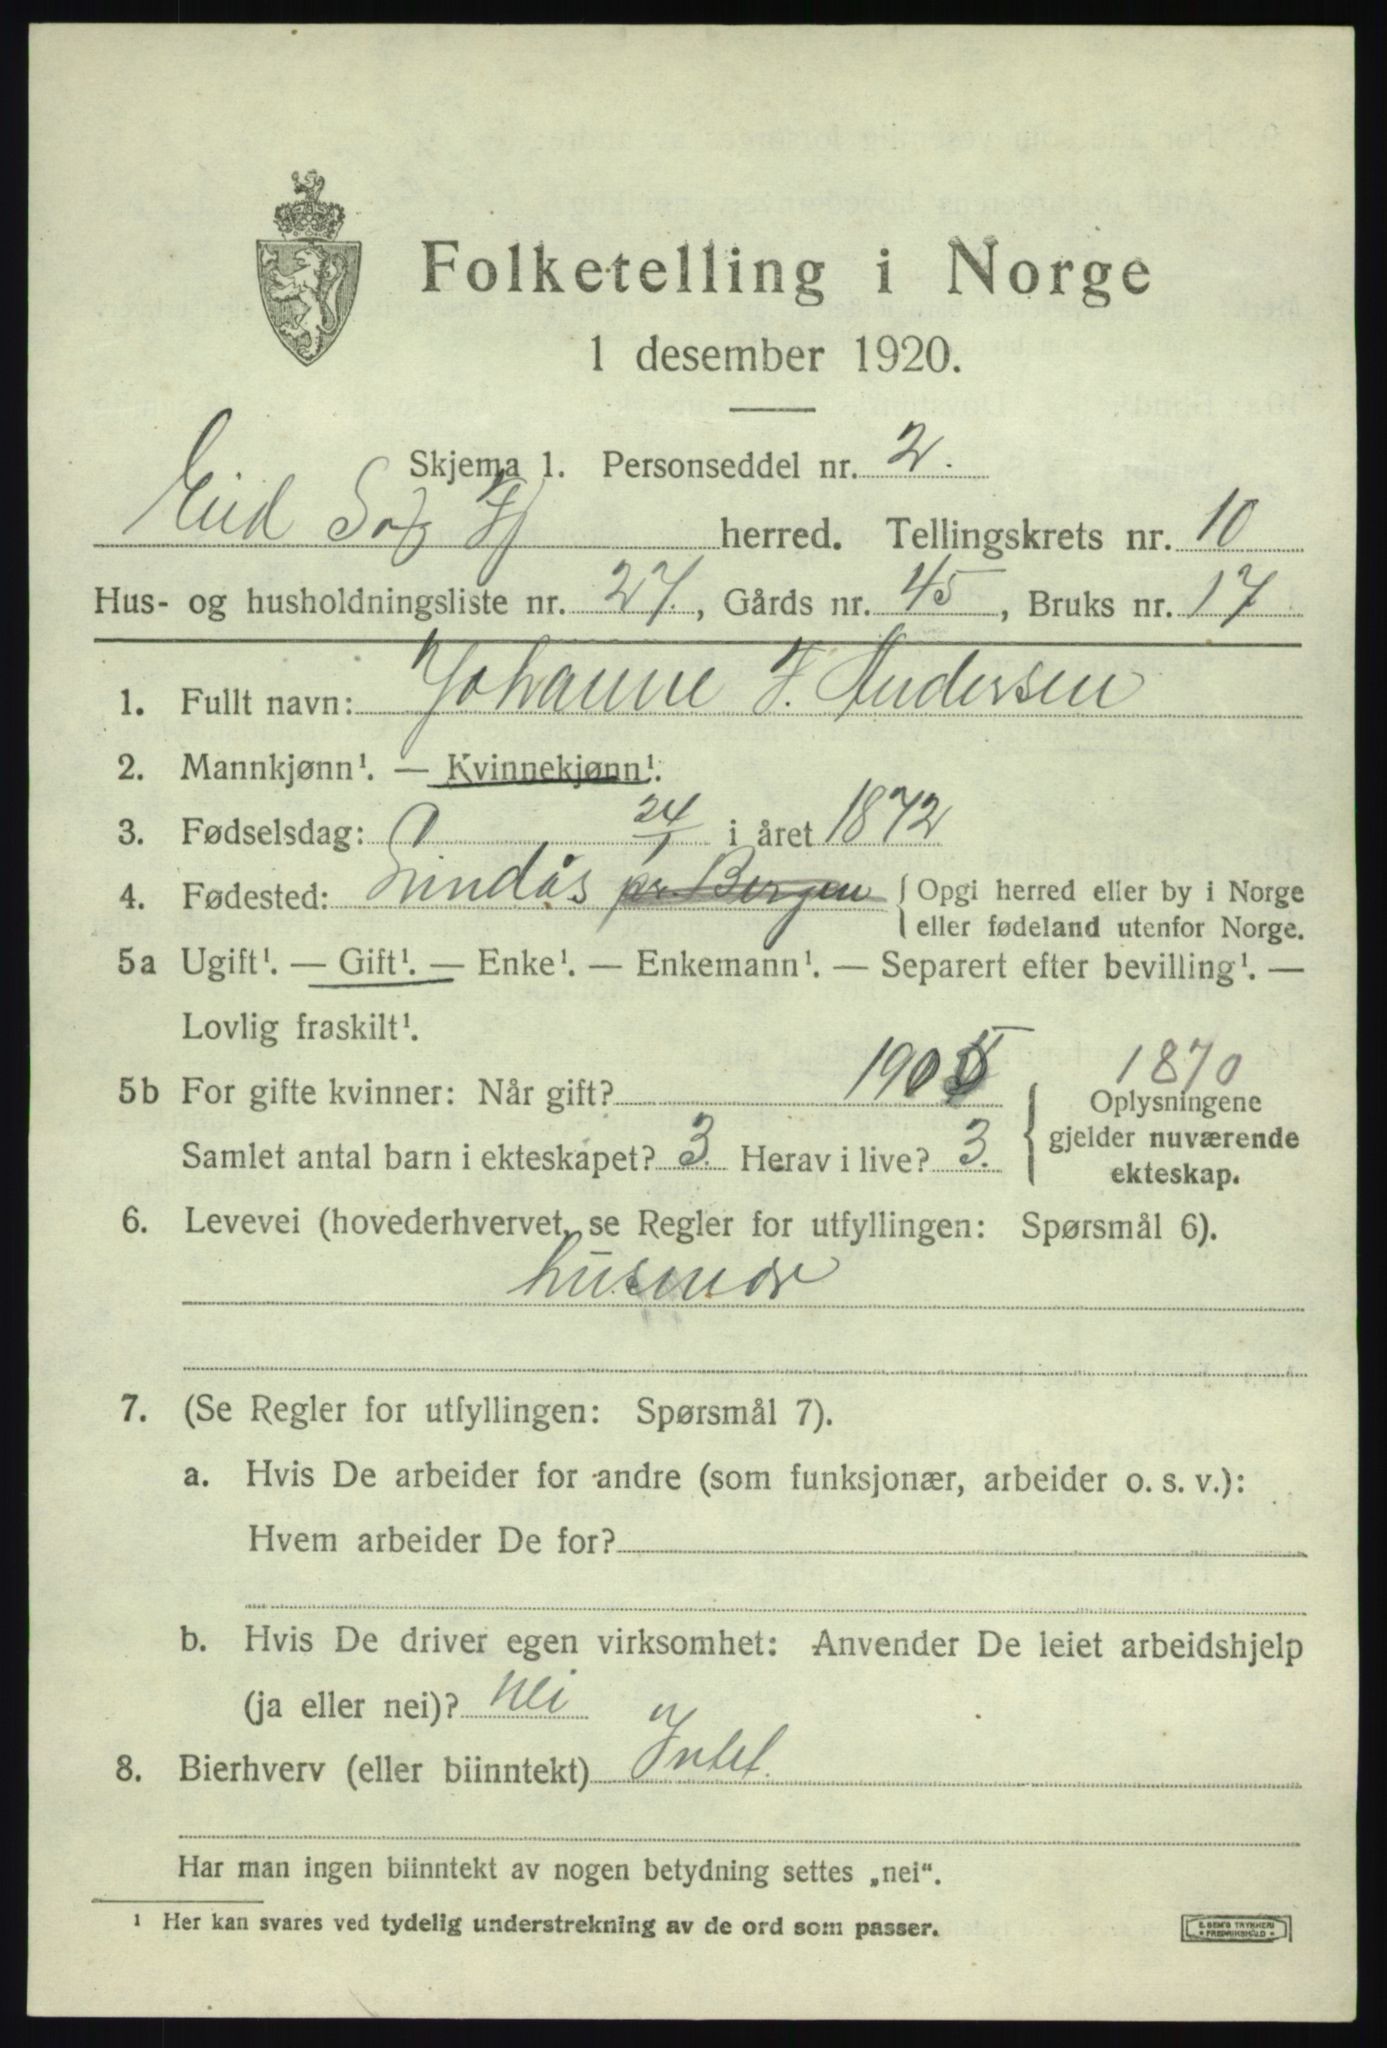 Folketelling i Norge
1 desember 1920.
Skjema 1. Personseddel nr. 2.
Eid herred. Tellingskrets nr. 10
Hus- og husholdningsliste nr. 27., Gårds nr. 45, Bruks nr. 17
1. Fullt navn: Johanne F. Andersen
2. Mannkjønn¹. — Kvinnekjønn¹.
3. Fødselsdag: 24/1 i året 1872
4. Fødested: Lindås pr Bergen { Opgi herred eller by i Norge
eller fødeland utenfor Norge.
5a Ugift¹. — Gift¹. — Enke¹. — Enkemann¹. — Separert efter bevilling¹. —
Lovlig fraskilt¹.
1870
5b For gifte kvinner: Når gift? 1905 { Oplysningene
gjelder nuværende
Samlet antal barn i ekteskapet? 3. Herav i live? 3.
ekteskap.
6. Levevei (hovederhvervet, se Regler for utfyllingen: Spørsmål 6).
husmor
7. (Se Regler for utfyllingen: Spørsmål 7).
a. Hvis De arbeider for andre (som funksjonær, arbeider o. s. v.):
Hvem arbeider De for?
b. Hvis De driver egen virksomhet: Anvender De leiet arbeidshjelp
(ja eller nei)? nei
8. Bierhverv (eller biinntekt) Intet.
Har man ingen biinntekt av nogen betydning settes „nei“.
¹ Her kan svares ved tydelig understrekning av de ord som passer.
E. SEM'S TRYKKERI
FREDRIKSHALD